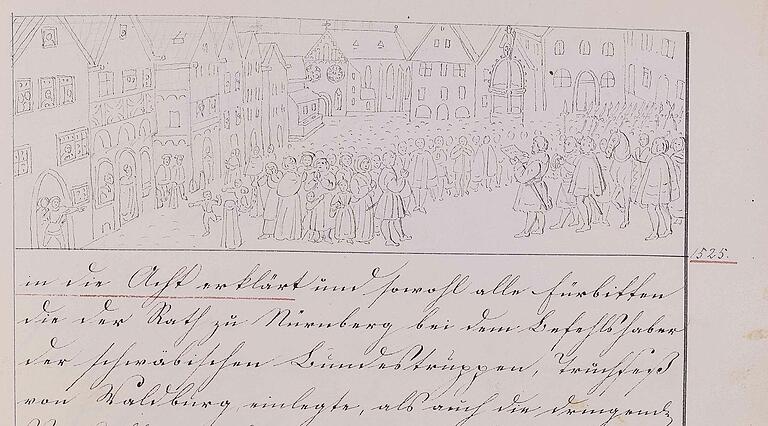 1525.
in die Acht erklärt und sowohl alle Fürbitten
die der Rath zu Nürnberg bei dem Befehlshaber
der schwäbischen Bundestruppen, Truchseß
von Waldburg einlegte, als auch die dringende